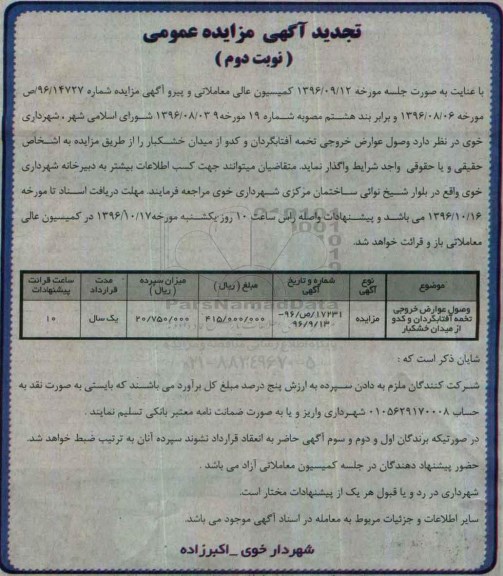 تجدید آگهی مزایده عمومی
( نوبت دوم )
با عنایت به صورت جلسه مورخه ۱۳۹۶/۰۹/۱۲ کمیسیون عالی معاملاتی و پیرو آگهی مزایده شماره ۹۶/۱۴۷۲۷/ص
مورخه ۱۳۹۶/۰۸/۰۶ و برابر بند هشتم مصوبه شماره ۱۹ مورخه ۱۳۹۶/۰۸/۰۳ شورای اسلامی شهر ، شهرداری
خوی در نظر دارد وصول عوارض خروجی تخمه آفتابگردان و کدو از میدان خشکبار را از طریق مزایده به اشخاص
حقیقی و یا حقوقی واجد شرایط واگذار نماید. متقاضیان میتوانند جهت کسب اطلاعات بیشتر به دبیرخانه شهرداری
خوی واقع در بلوار شیخ نوائی ساختمان مرکزی شهرداری خوی مراجعه فرمایند. مهلت دریافت اسناد تا مورخه
۱۳۹۶/۱۰/۱۶ می باشد و پیشنهادات واصله راس ساعت ۱۰ روز یکشنبه مورخه ۱۳۹۶/۱۰/۱۷ در کمیسیون عالی
معاملاتی باز و قرائت خواهد شد.
موضوع نوع آگهی شماره و تاریخ آگهی مبلغ ( ریال ) میزان سپرده ( ریال ) مدت قرارداد ساعت قرائت پیشنهادات
وصول عوارض خروجی تخمه آفتابگردان و کدو از میدان خشکبار مزایده ۱۷۲۳۱/ص/۹۶- ۹۶/۹/۱۳ ۴۱۵/۰۰۰/۰۰۰ ۲۰/۷۵۰/۰۰۰ یک سال ۱۰
ParsNamadData
۰۲۱-۸۸۳۴۹۶۷۰-۵
شایان ذکر است که :
شرکت کنندگان ملزم به دادن سپرده به ارزش پنج درصد مبلغ کل برآورد می باشند که بایستی به صورت نقد به
حساب ۰۱۰۵۶۲۹۱۷۰۰۰۸ شهرداری واریز و یا به صورت ضمانت نامه معتبر بانکی تسلیم نمایند .
در صورتیکه برندگان اول و دوم و سوم آگهی حاضر به انعقاد قرارداد نشوند سپرده آنان به ترتیب ضبط خواهد شد.
حضور پیشنهاد دهندگان در جلسه کمیسیون معاملاتی آزاد می باشد .
شهرداری در رد و یا قبول هر یک از پیشنهادات مختار است.
سایر اطلاعات و جزئیات مربوط به معامله در اسناد آگهی موجود می باشد.
شهردار خوی _اکبرزاده